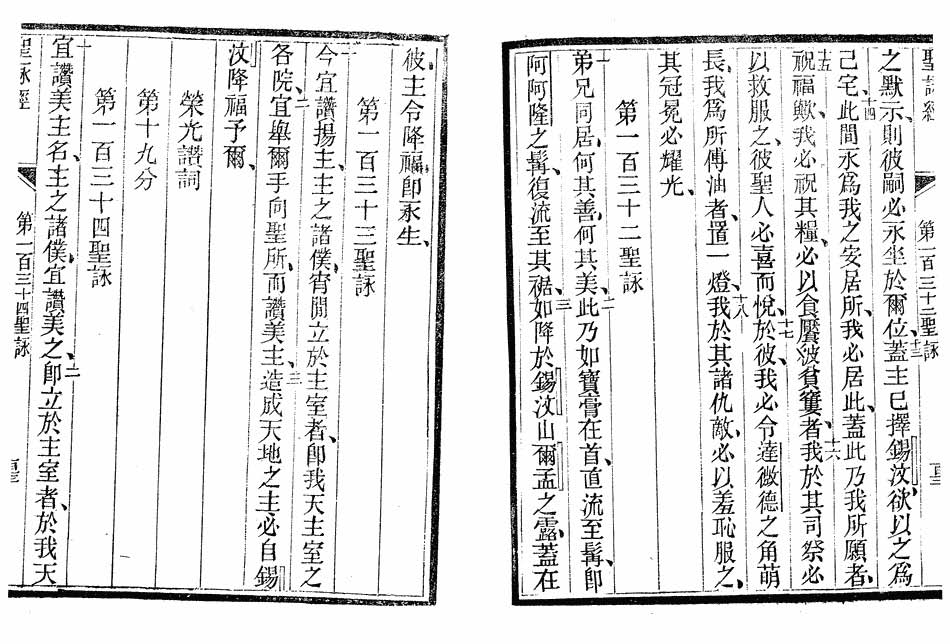 聖詠經
第一百三十二聖詠
之默示、則彼嗣必永坐於爾位、十三蓋主已擇錫汶、欲以之爲
己宅、十四此間永爲我之安居所、我必居此、蓋此乃我所願者、
十五祝福歟、我必祝其糧、必以食饜彼貧窶者、十六我於其司祭必
以救服之、彼聖人必喜而悅於彼、十七我必令達微德之角萌
長、我爲所傅油者、置一燈、十八我於其諸仇敵、必以羞恥服之、
其冠冕必耀光、
第一百三十二聖詠
一弟兄同居、何其善、何其美、二此乃如寶膏在首、直流至髯、卽
阿阿隆之髯、復流至其裾、三如降於錫汶山爾孟之露、蓋在
彼、主令降福、卽永生、
第一百三十三聖詠
一今宜讚揚主、主之諸僕、宵間立於主室者、卽我天主室之
各院、二宜舉爾手向聖所、而讚美主、三造成天地之主、必自錫
汶降福予爾、
榮光讚詞
第十九分
第一百三十四聖詠
一宜讚美主名、主之諸僕、宜讚美之、二卽立於主室者、於我天
聖詠經
第一百三十四聖詠